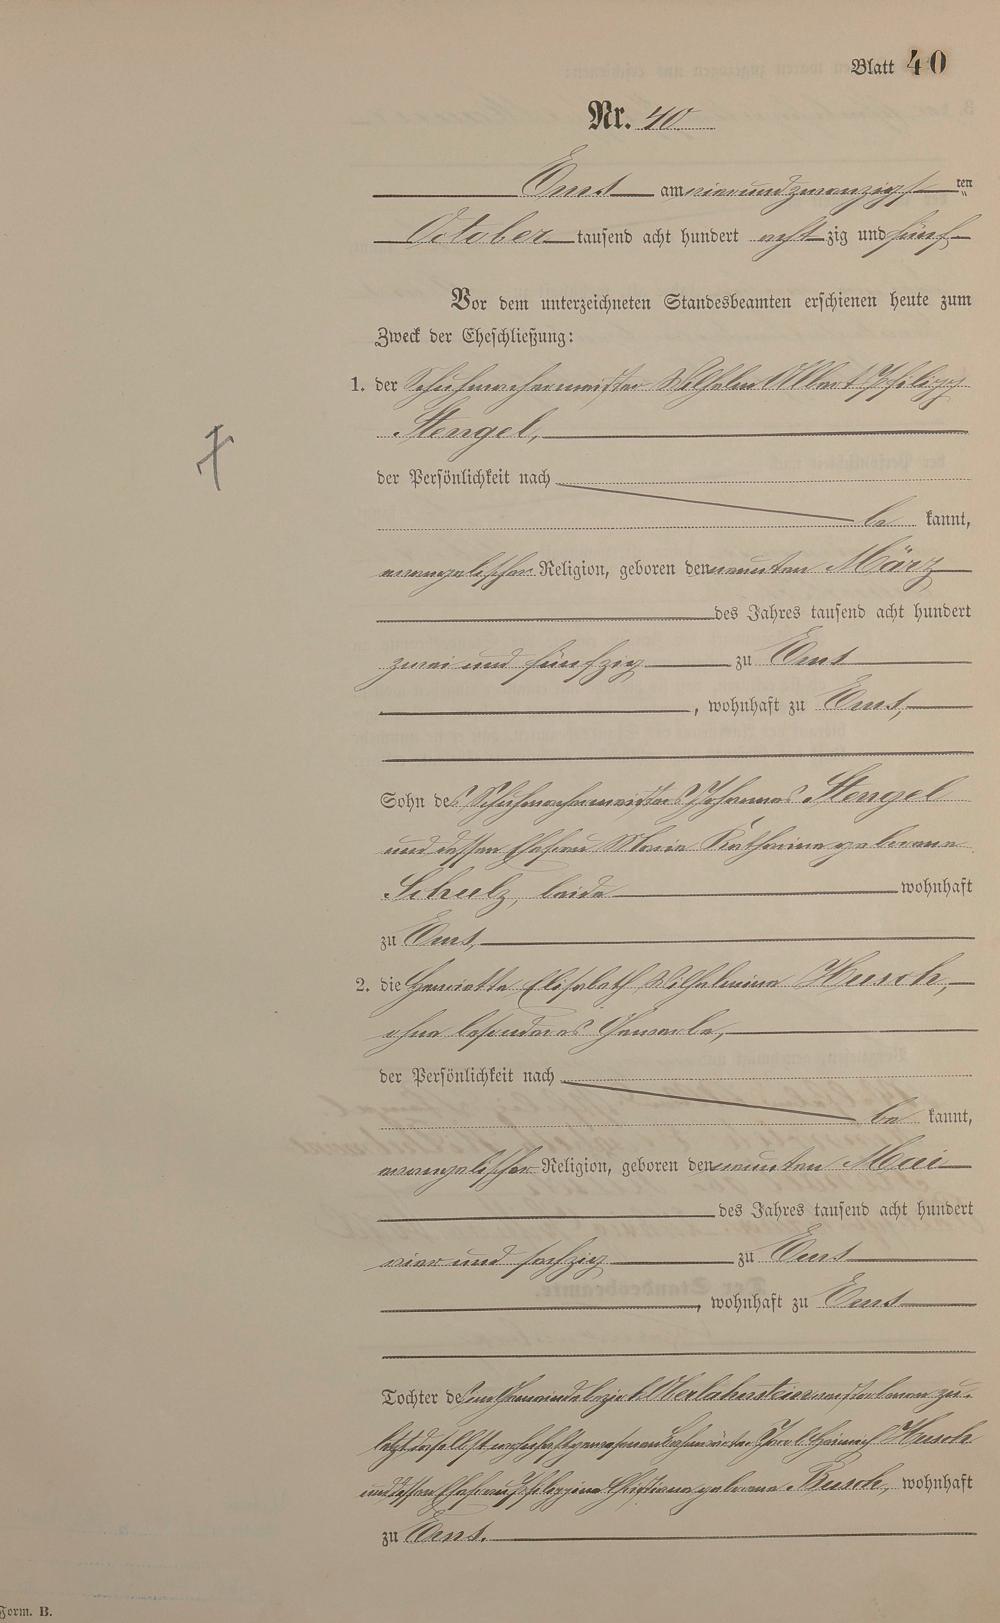 Blatt 40
Nr. 40
Ems am vierundzwanzigsten
October tausend acht hundert achtzig und fünf
Vor dem unterzeichneten Standesbeamten erschienen heute zum
Zweck der Eheschließung:
1. der Schuhmachermeister Wilhelm Albert Philipp
Stengel,
der Persönlichkeit nach
be kannt,
evangelischer Religion, geboren den neunten März
des Jahres tausend acht hundert
zwei und fünfzig zu Ems
, wohnhaft zu Ems,
Sohn des Schuhmachermeisters Johannes Stengel
und dessen Ehefrau Maria Katharina geborene
Schulz, beide wohnhaft
zu Ems,
2. die Henriette Elisabeth Wilhelmine Husch,
ohne besonderes Gewerbe,
der Persönlichkeit nach
be kannt,
evangelischer Religion, geboren den neunten Mai
des Jahres tausend acht hundert
vier und sechzig zu Ems
, wohnhaft zu Ems
Tochter des im Gemeindebezirk Oberlahnstein verstorbenen zu-
letzt daselbst wohnhaft gewesenen Bahnwärter Heinrich Husch
und dessen Ehefrau Philippine Christiane geborene Busch, wohnhaft
zu Ems.
Form. B.